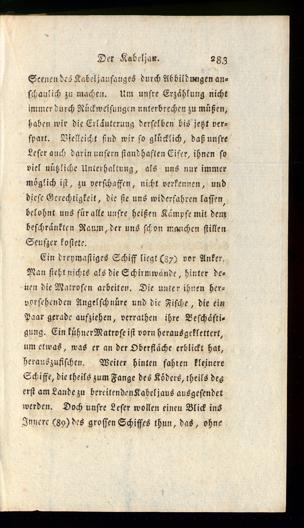 Der Kabeljau. 283
Scenen des Kabeljaufanges durch Abbildungen an-
schaulich zu machen. Um unsre Erzählung nicht
immer durch Rückweisungen unterbrechen zu müßen,
haben wir die Erläuterung derselben bis jetzt ver-
spart. Vielleicht sind wir so glücklich, daß unsre
Leser auch darin unsern standhaften Eifer, ihnen so
viel nützliche Unterhaltung, als uns nur immer
möglich ist, zu verschaffen, nicht verkennen, und
diese Gerechtigkeit, die sie uns widerfahren lassen,
belohnt uns für alle unsre heißen Kämpfe mit dem
beschränkten Raum, der uns schon manchen stillen
Seufzer kostete.
Ein dreymastiges Schiff liegt (87) vor Anker.
Man sieht nichts als die Schirmwände, hinter de-
nen die Matrosen arbeiten. Die unter ihnen her-
vorsehenden Angelschnüre und die Fische, die ein
Paar gerade aufziehen, verrathen ihre Beschäfti-
gung. Ein kühner Matrose ist vorn herausgeklettert,
um etwas, was er an der Oberfläche erblickt hat,
herauszufischen. Weiter hinten fahren kleinere
Schiffe, die theils zum Fange des Köders, theils des
erst am Lande zu bereitenden Kabeljaus ausgesendet
werden. Doch unsre Leser wollen einen Blick ins
Innere (89) des grossen Schiffes thun, das, ohne